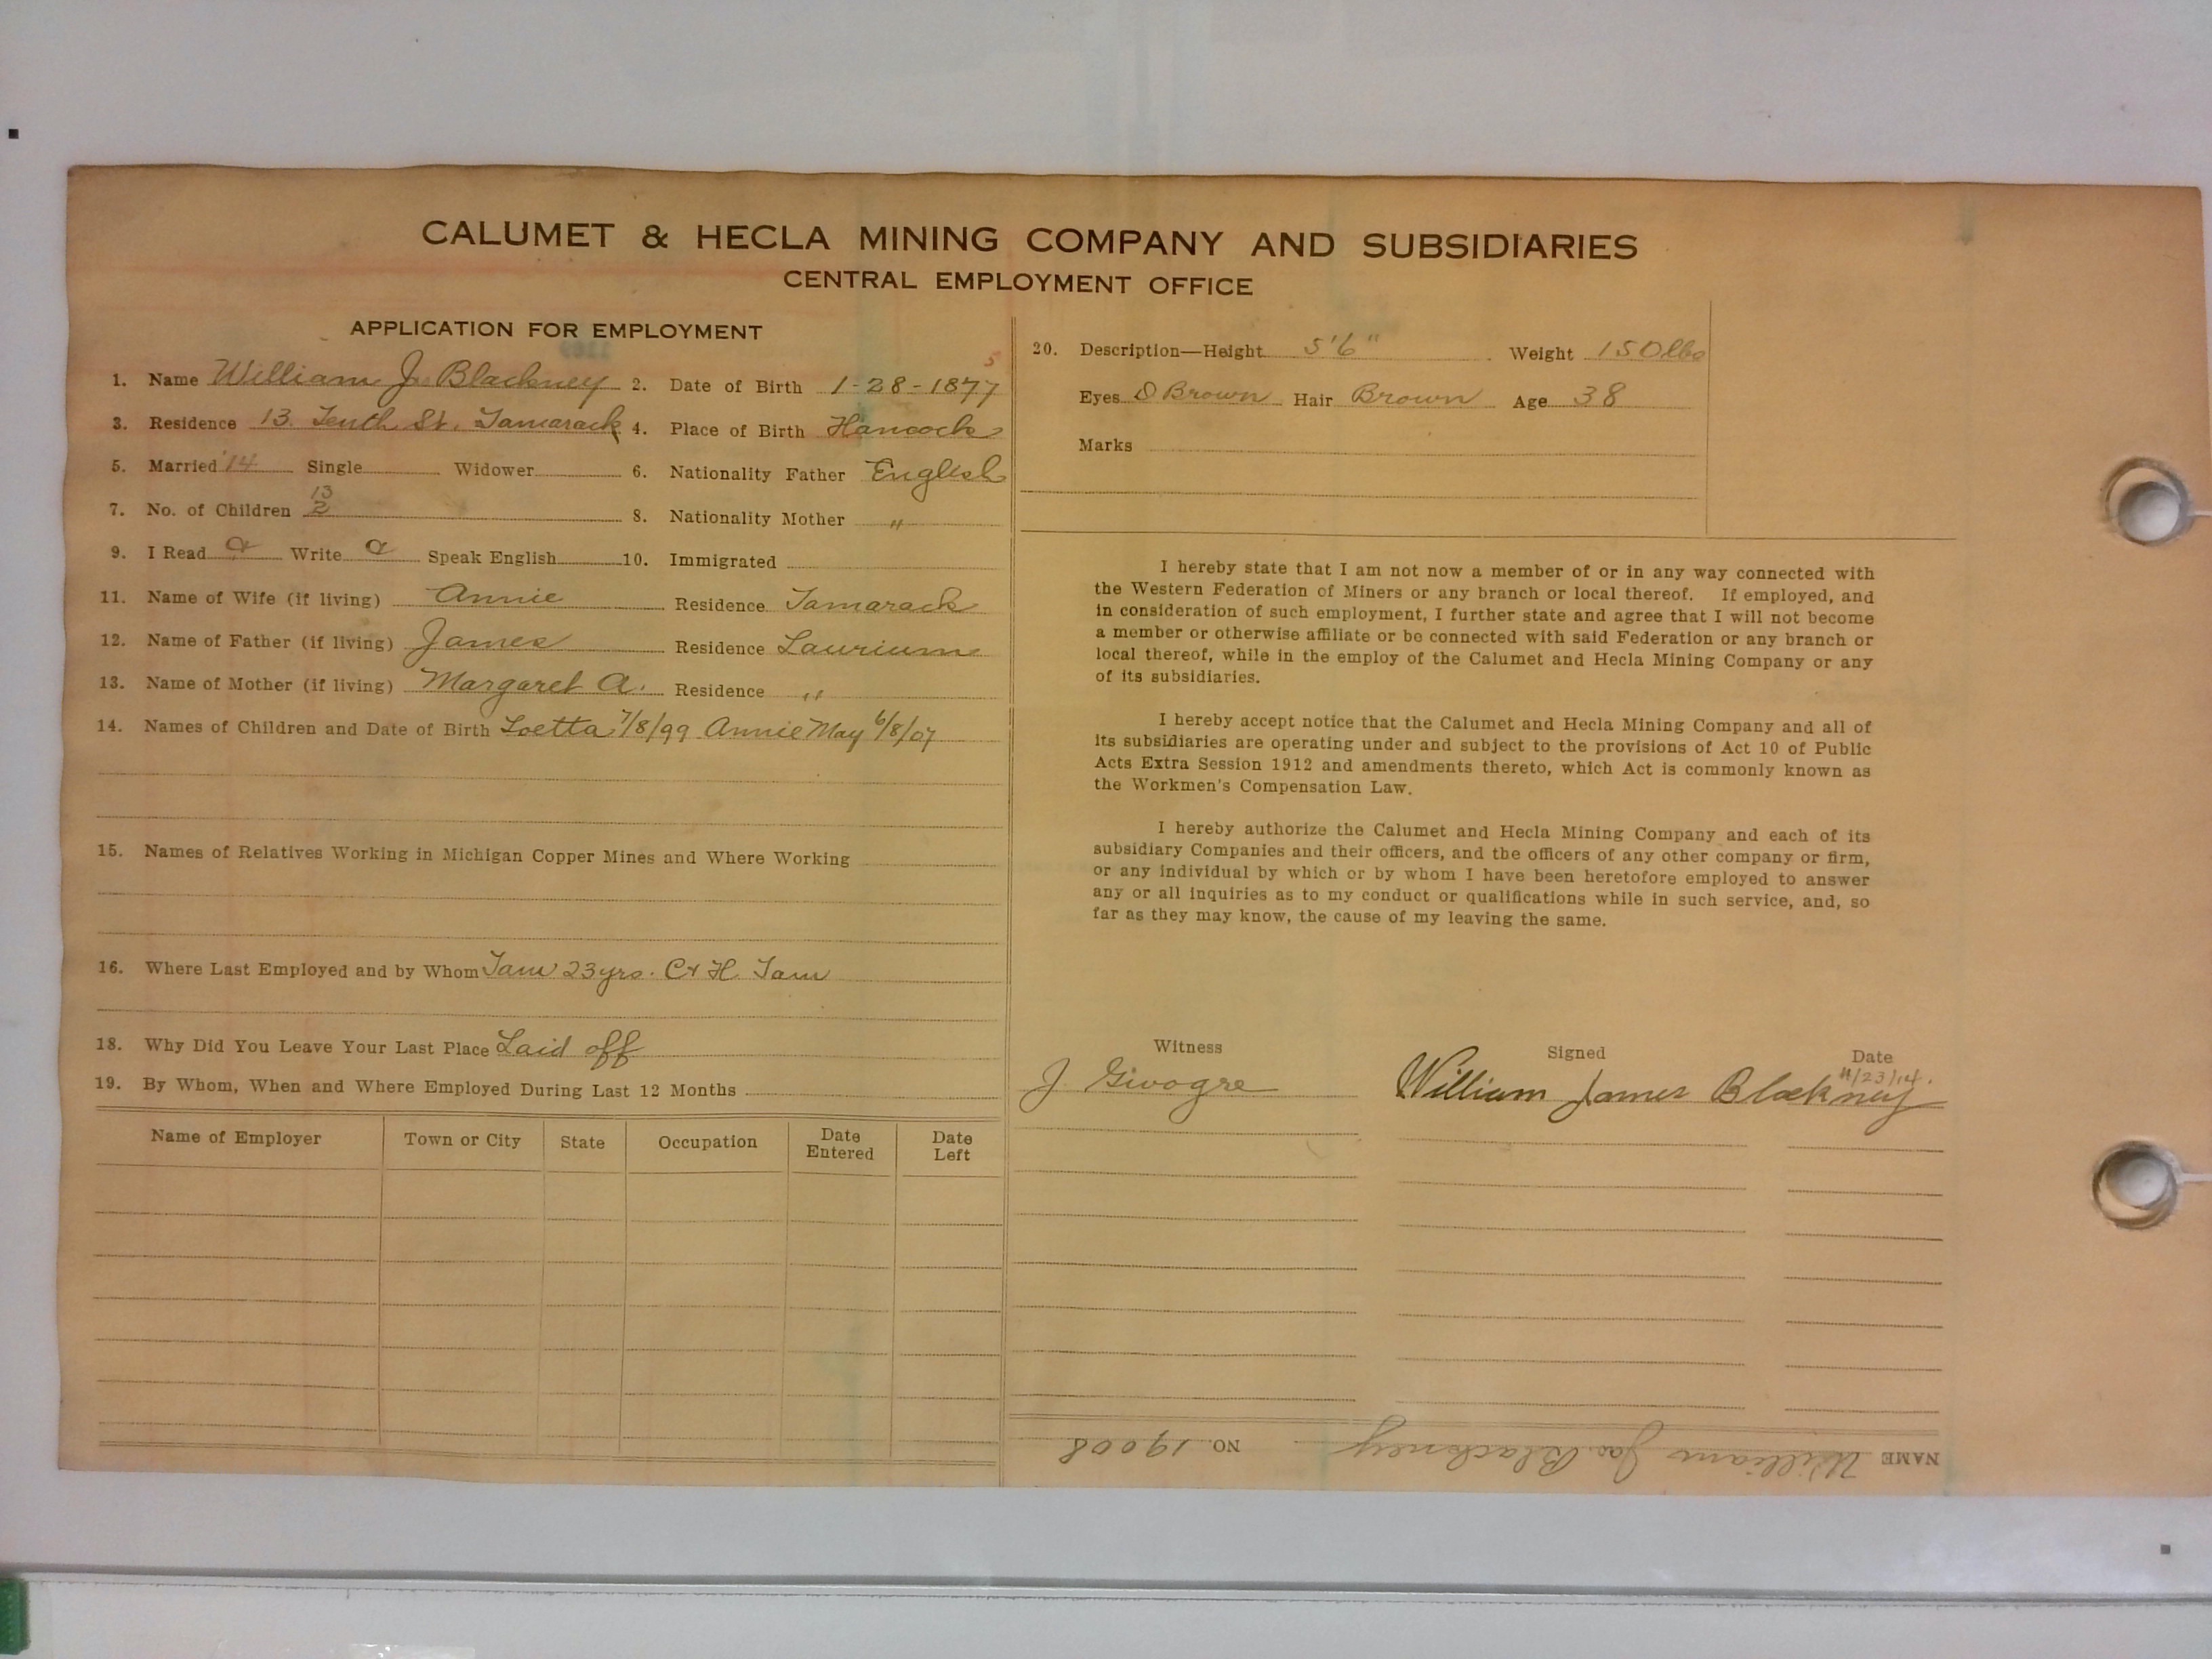 CALUMET & HECLA MINING COMPANY AND SUBSIDIARIES
CENTRAL EMPLOYMENT OFFICE
APPLICATION FOR EMPLOYMENT
5
1. Name William J. Blackney 2. Date of Birth 1-28-1877
3. Residence 13. Tenth St. Tamarack 4. Place of Birth Hancock
5. Married '14 Single Widower 6. Nationality Father English
13
7. No. of Children 2 8. Nationality Mother "
9. I Read a Write a Speak English 10. Immigrated
11. Name of Wife (if living) Annie Residence Tamarack
12. Name of Father (if living) James Residence Laurium
13. Name of Mother (if living) Margaret A. Residence "
14. Names of Children and Date of Birth Loetta 7/8/99 Annie May 6/8/07
15. Names of Relatives Working in Michigan Copper Mines and Where Working
16. Where Last Employed and by Whom Tam 23 yrs. C & H. Tam
18. Why Did You Leave Your Last Place Laid off
19. By Whom, When and Where Employed During Last 12 Months
Name of Employer Town or City State Occupation Date Entered Date Left
20. Description—Height 5'6" Weight 150 lbs
Eyes D Brown Hair Brown Age 38
Marks
I hereby state that I am not now a member of or in any way connected with
the Western Federation of Miners or any branch or local thereof. If employed, and
in consideration of such employment, I further state and agree that I will not become
a member or otherwise affiliate or be connected with said Federation or any branch or
local thereof, while in the employ of the Calumet and Hecla Mining Company or any
of its subsidiaries.
I hereby accept notice that the Calumet and Hecla Mining Company and all of
its subsidiaries are operating under and subject to the provisions of Act 10 of Public
Acts Extra Session 1912 and amendments thereto, which Act is commonly known as
the Workmen's Compensation Law.
I hereby authorize the Calumet and Hecla Mining Company and each of its
subsidiary Companies and their officers, and the officers of any other company or firm,
or any individual by which or by whom I have been heretofore employed to answer
any or all inquiries as to my conduct or qualifications while in such service, and, so
far as they may know, the cause of my leaving the same.
Witness Signed Date
11/23/14.
J. William James Blackney
NAME William Jas Blackney NO. 19008